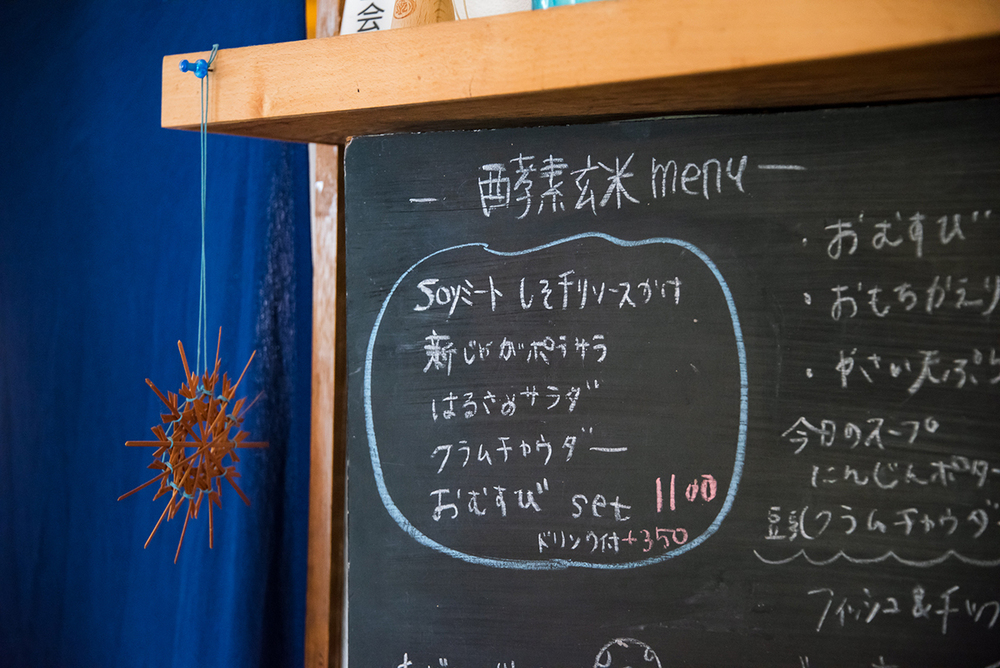 会
— 酵素玄米 menu —
Soyミート しそチリソースがけ
新じゃがポテサラ
はるさめサラダ
クラムチャウダー
おむすび set 1100
ドリンク付+350
・おむすび
・おもちかえり
・やさい天ぷら
今日のスープ
にんじんポター
豆乳クラムチャウダ
フィッシュ&チップ